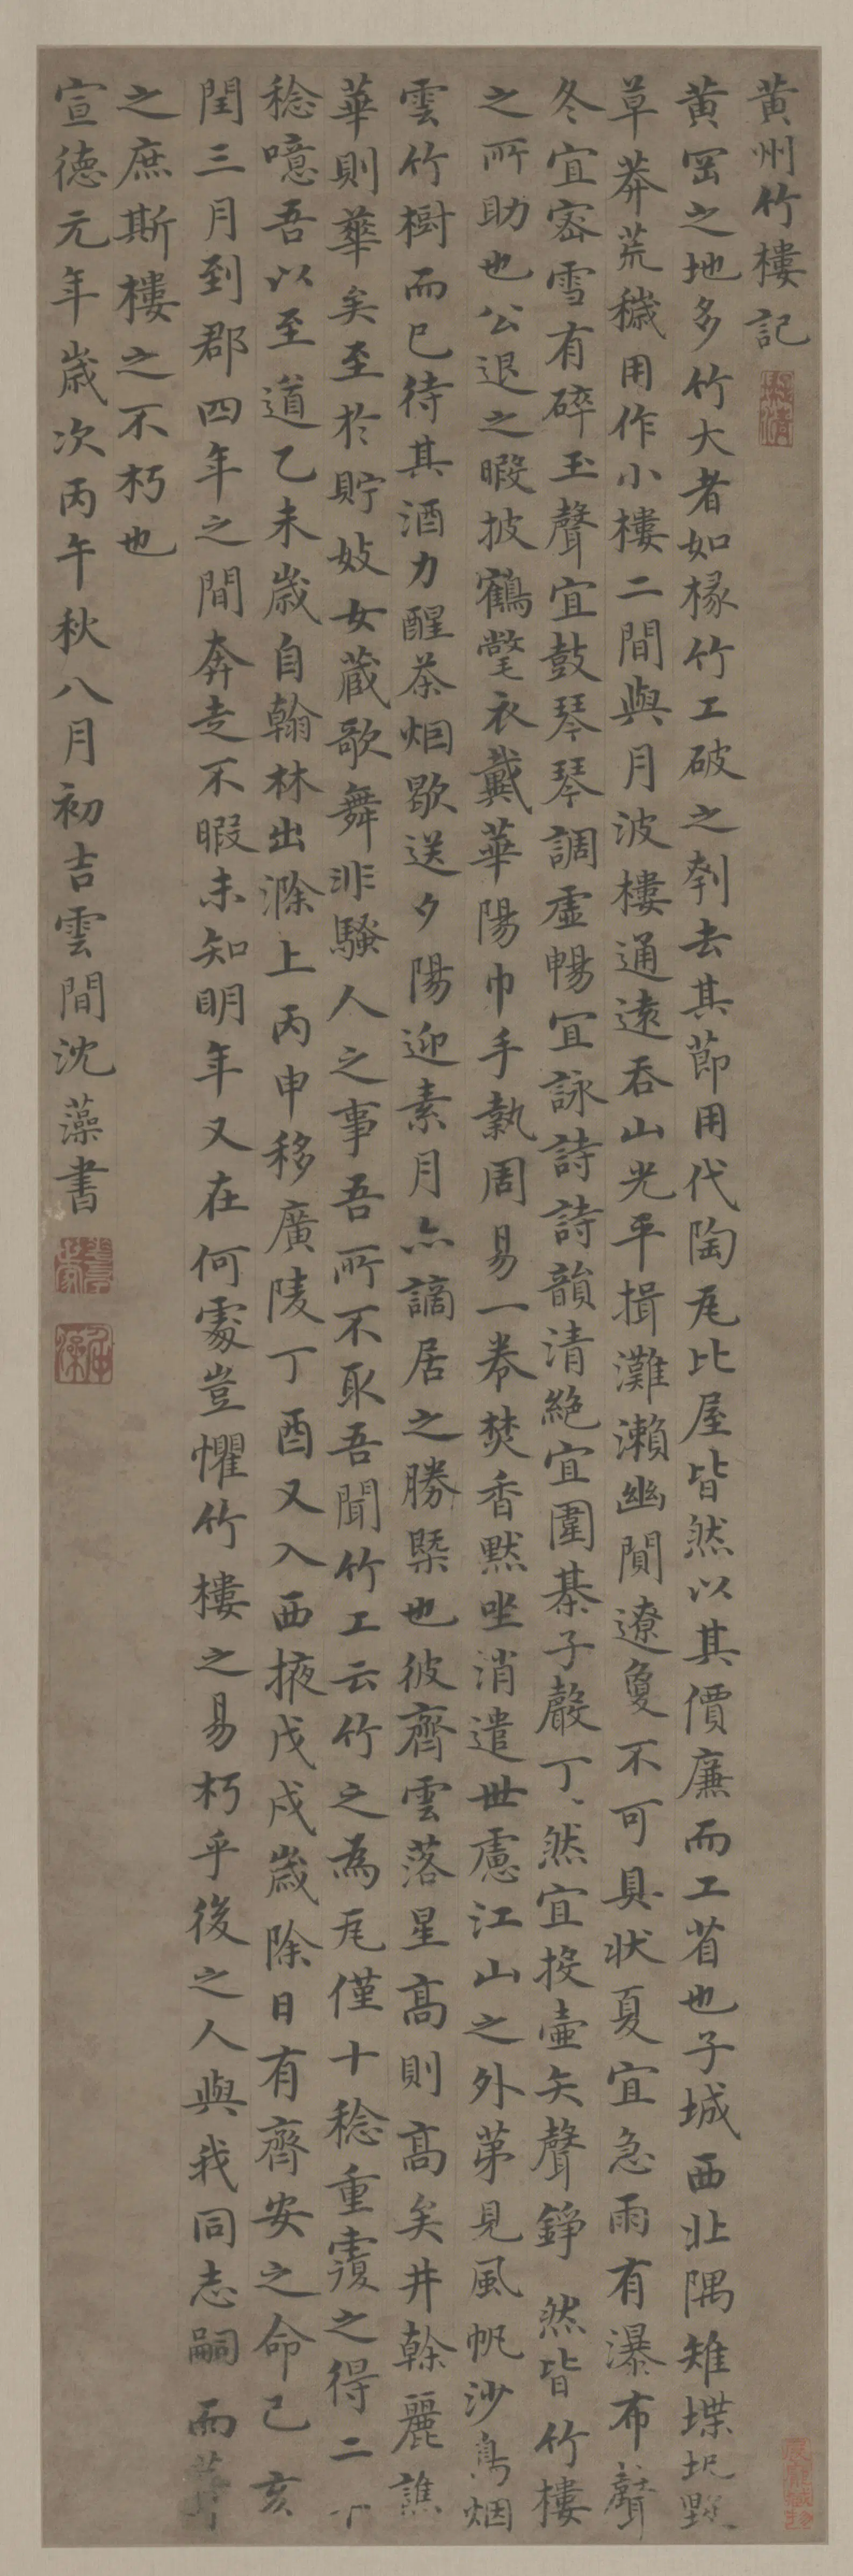 黄州竹樓記
黄岡之地多竹大者如椽竹工破之刳去其節用代陶瓦比屋皆然以其價廉而工省也子城西北隅雉堞圮毁
草莽荒穢用作小樓二間與月波樓通遠吞山光平揖灘瀨幽閴遼夐不可具状夏宜急雨有瀑布聲
冬宜宻雪有碎玉聲宜鼓琴琴調虛暢宜詠詩詩韻清絕宜圍棊子聲丁丶然宜投壷矢聲錚然皆竹樓
之所助也公退之暇披鶴氅衣戴華陽巾手執周易一卷焚香默坐消遣世慮江山之外苐見風帆沙鳥烟
雲竹樹而已待其酒力醒茶烟歇送夕陽迎素月亦謫居之勝槩也彼齊雲落星髙則髙矣井榦麗譙
華則華矣至於貯妓女藏歌舞非騷人之事吾所不取吾聞竹工云竹之為瓦僅十稔重覆之得二十
稔噫吾以至道乙未歲自翰林出滁上丙申移廣陵丁酉又入西掖戊戌歲除日有齊安之命己亥
閏三月到郡四年之間奔走不暇未知明年又在何處豈懼竹樓之易朽乎後之人與我同志嗣而葺
之庶斯樓之不朽也
宣德元年歲次丙午秋八月初吉雲間沈藻書